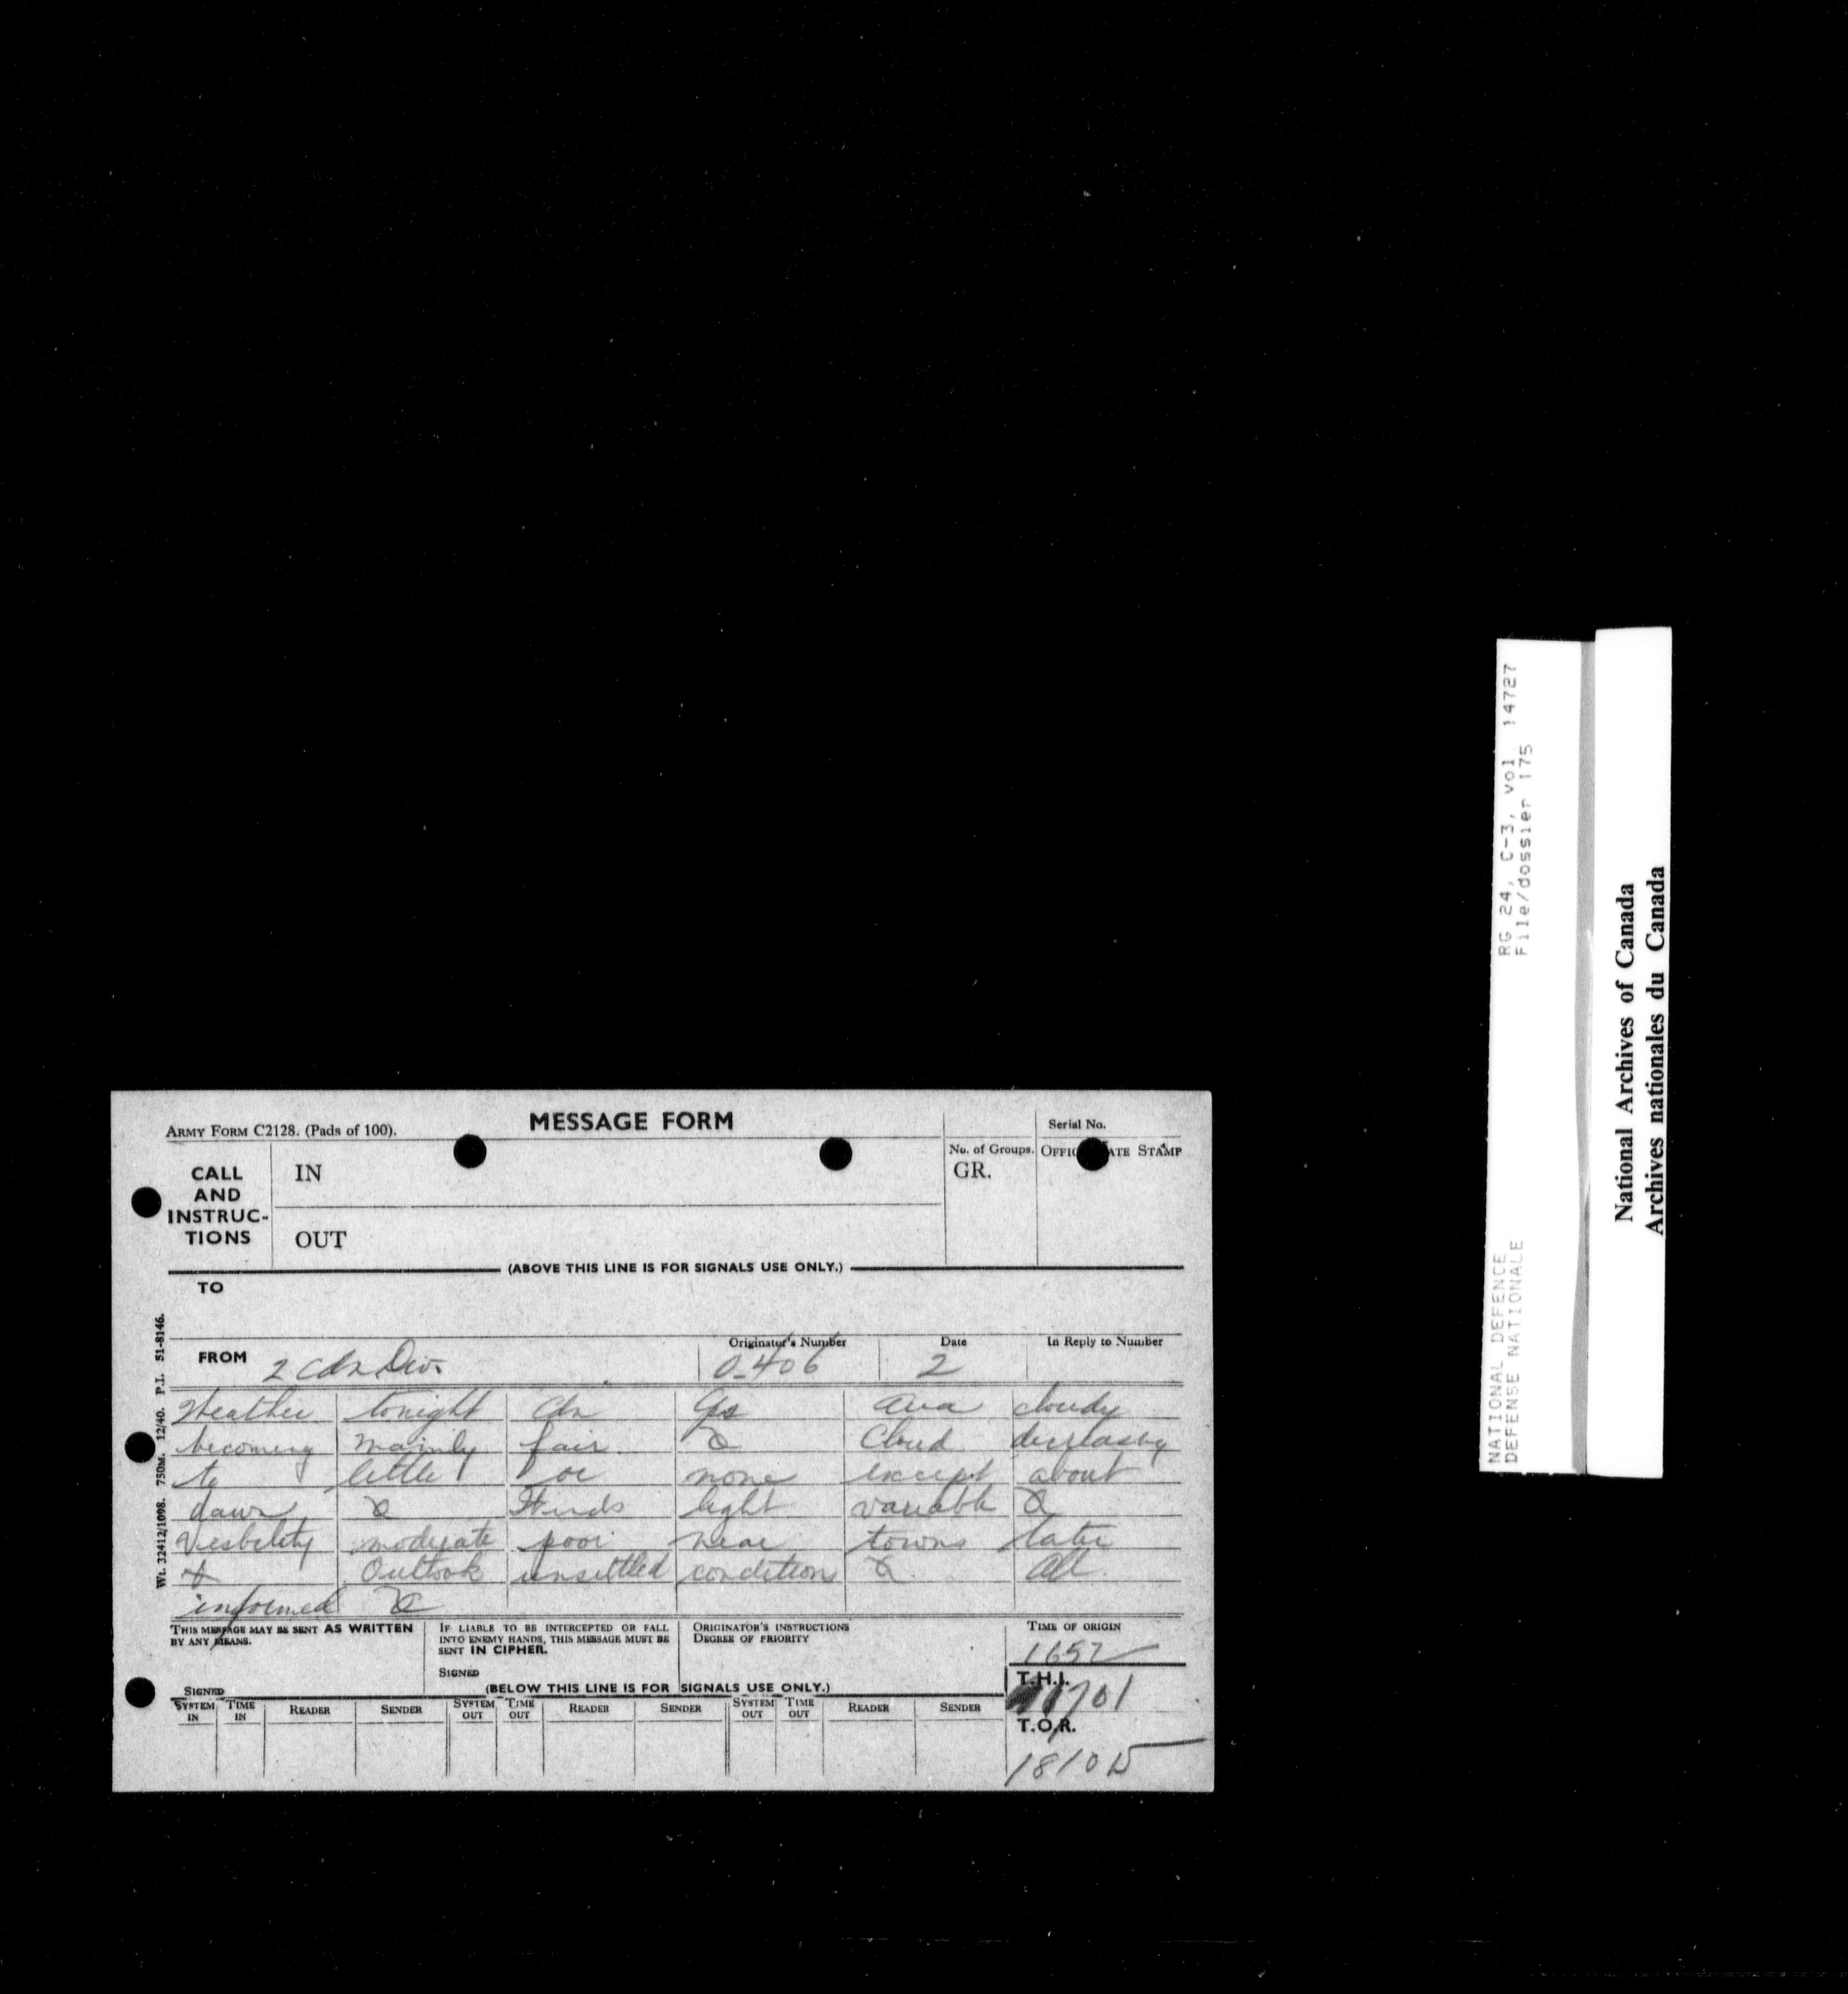 ARMY FORM C2128. (Pads of 100).
MESSAGE FORM
Serial No.
CALL AND INSTRUC- TIONS
IN
No. of Groups. GR.
OFFIC ATE STAMP
OUT
(ABOVE THIS LINE IS FOR SIGNALS USE ONLY.)
TO
FROM 2 Cdn Div. Originator's Number 0-406 Date 2 In Reply to Number
Weather tonight Cdn area cloudy
becoming mainly fair X Cloud decreasing
to little or none except about
dawn X Winds light variable X
Visbility moderate poor near towns later
X Outlook unsettled conditions X All
informed X
THIS MESSAGE MAY BE SENT AS WRITTEN BY ANY MEANS.
SIGNED
IF LIABLE TO BE INTERCEPTED OR FALL INTO ENEMY HANDS, THIS MESSAGE MUST BE SENT IN CIPHER.
SIGNED
ORIGINATOR'S INSTRUCTIONS
DEGREE OF PRIORITY
TIME OF ORIGIN
1652
T.H.I.
1701
T.O.R.
(BELOW THIS LINE IS FOR SIGNALS USE ONLY.)
SYSTEM IN TIME IN READER SENDER SYSTEM OUT TIME OUT READER SENDER SYSTEM OUT TIME OUT READER SENDER
Wt. 32412/1098. 750M. 12/40. P.I. 51-8146.
NATIONAL DEFENCE RG 24, C-3, vol. 14727
DEFENSE NATIONALE File/dossier 175
National Archives of Canada
Archives nationales du Canada